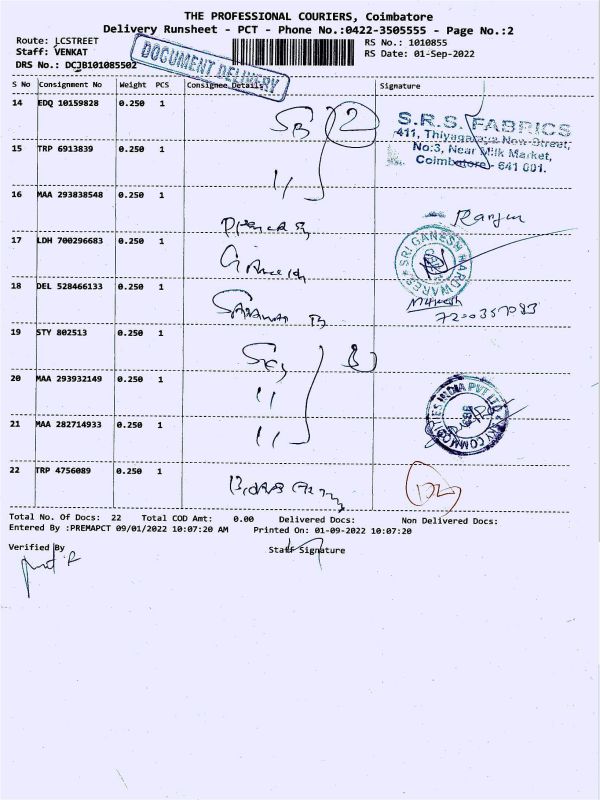 THE PROFESSIONAL COURIERS, Coimbatore
Delivery Runsheet - PCT - Phone No.:0422-3505555 - Page No.:2
Route: LCSTREET
RS No.: 1010855
Staff: VENKAT
RS Date: 01-Sep-2022
DRS No.: DCJB101085502
DOCUMENT DELIVERY
S No Consignment No Weight PCS Consignee Details Signature
14 EDQ 10159828 0.250 1
2
S.R.S. FABRICS
411, Thiyagaraya New Street,
No:3, Near Milk Market,
Coimbatore - 641 001.
15 TRP 6913839 0.250 1
16 MAA 293838548 0.250 1
17 LDH 700296683 0.250 1
SRI GANESH HARDWARES
18 DEL 528466133 0.250 1
19 STY 802513 0.250 1
20 MAA 293932149 0.250 1
21 MAA 282714933 0.250 1
22 TRP 4756089 0.250 1
Total No. Of Docs: 22 Total COD Amt: 0.00 Delivered Docs: Non Delivered Docs:
Entered By :PREMAPCT 09/01/2022 10:07:20 AM Printed On: 01-09-2022 10:07:20
Verified By
Staff Signature